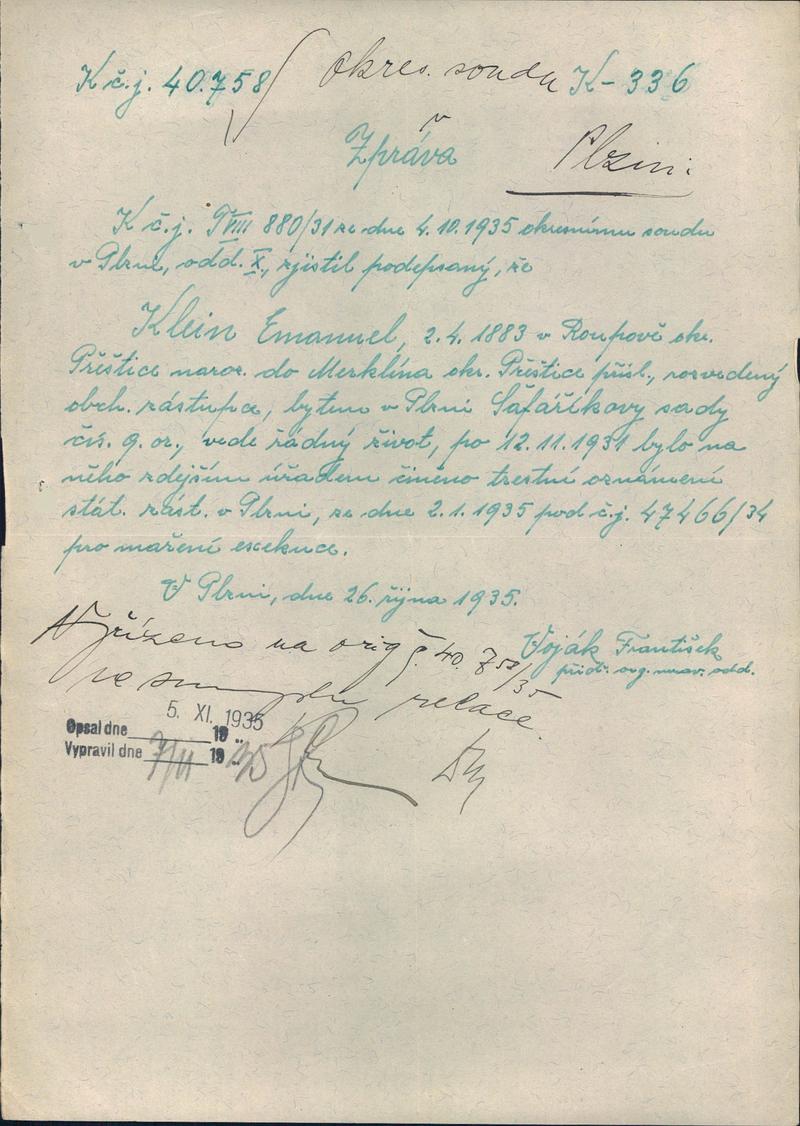 K č.j. 40.758/ Okres. soudu K-336
v
Zpráva Plzni.
K č.j. T VIII 880/31 ze dne 4.10.1935 okresnímu soudu
v Plzni, odd. X., zjistil podepsaný, že
Klein Emanuel, 2.4. 1883 v Roupově okr.
Přeštice naroz. do Merklína okr. Přeštice přísl., rozvedený
obch. zástupce, bytem v Plzni Šafaříkovy sady
čís. 9. or., vede řádný život, po 12.11.1931 bylo na
něho zdejším úřadem činěno trestní oznámení
stát. zást. v Plzni, ze dne 2.1.1935 pod č.j. 47466/34
pro maření exekuce.
V Plzni, dne 26. října 1935.
Vyřízeno na orig č. 40.758/35
Voják František
ve smyslu relace.
5. XI. 1935
Opsal dne 19
Vypravil dne 7/11 19 35